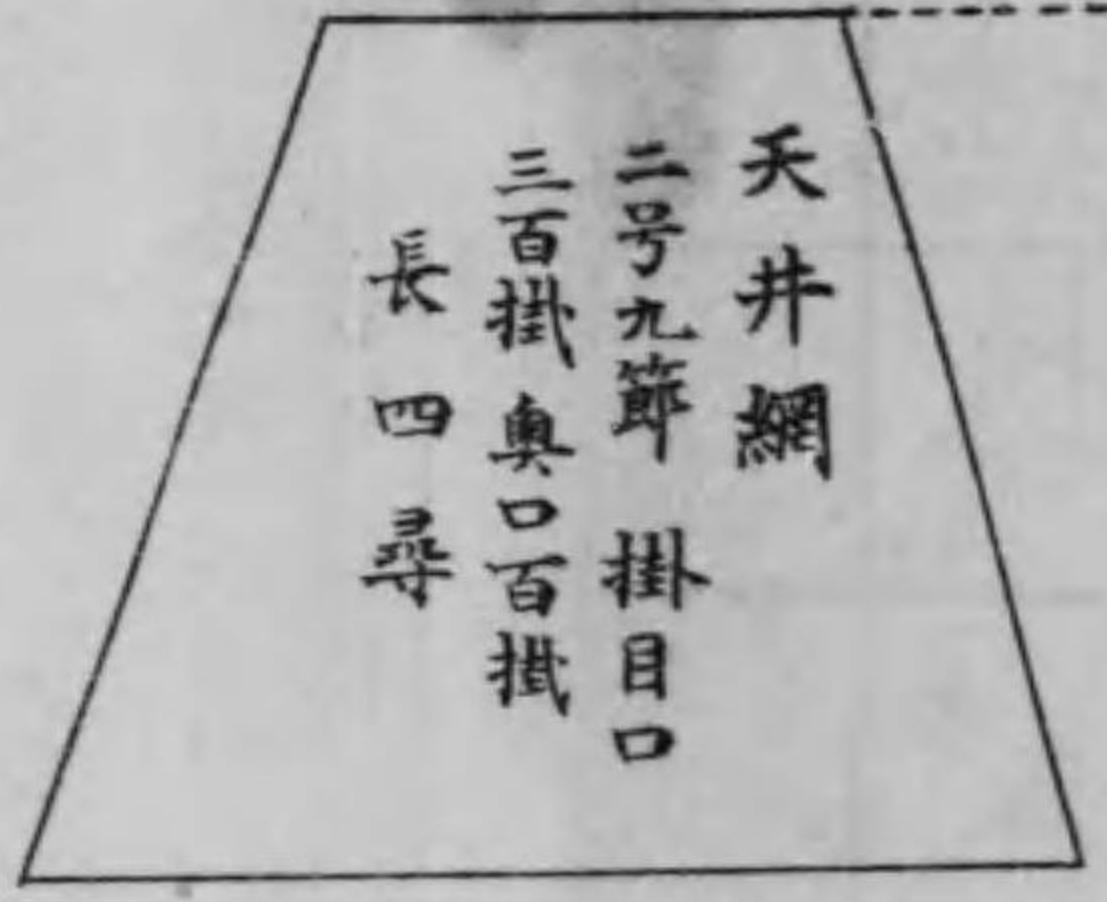 天井網
二号九節 掛目口
三百掛 奥口百掛
長四尋